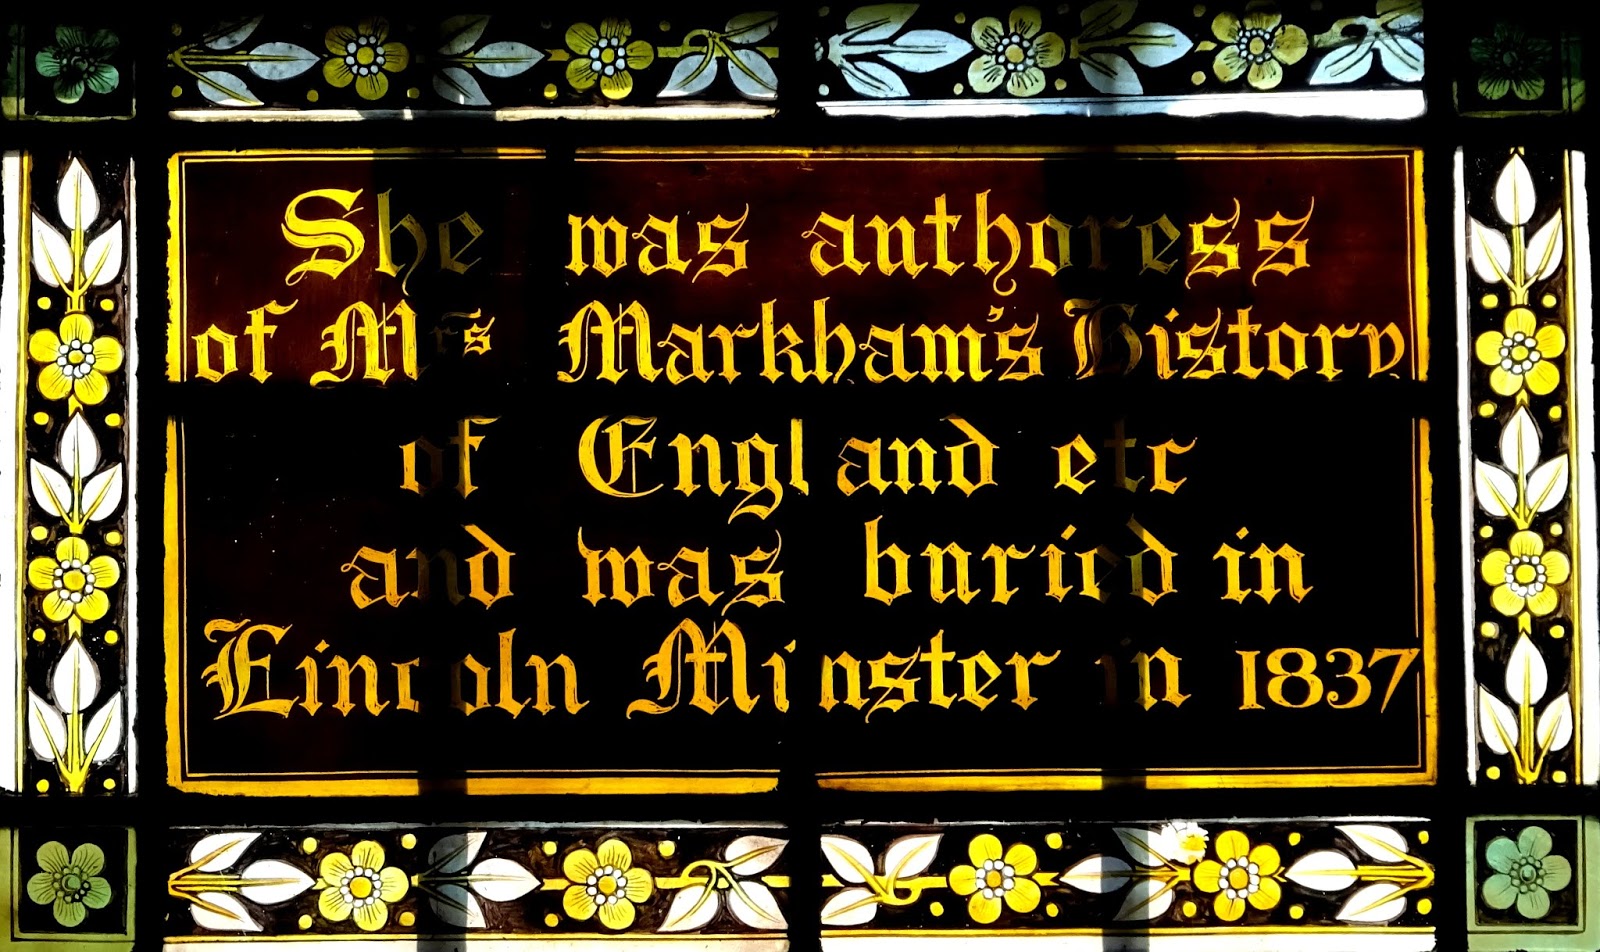 She was authoress
of Mrs Markham's History
of England etc
and was buried in
Lincoln Minster in 1837